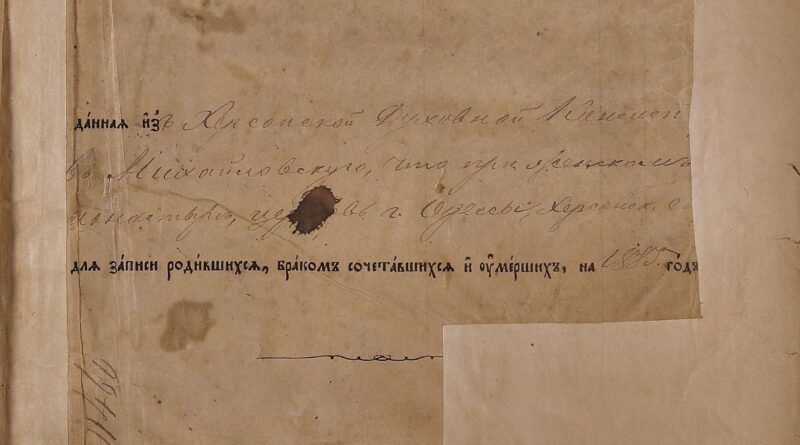 да́нная и҆́зъ Херсонской Духовной Консист
въ Михайловскую, что при женскомъ
монастырѣ, въ г. Одессы, Херсонск.
для за́писи роди́вшихся, бра́комъ сочета́вшихся и҆ ᲂу҆ме́ршихъ, на 1885 го́дъ